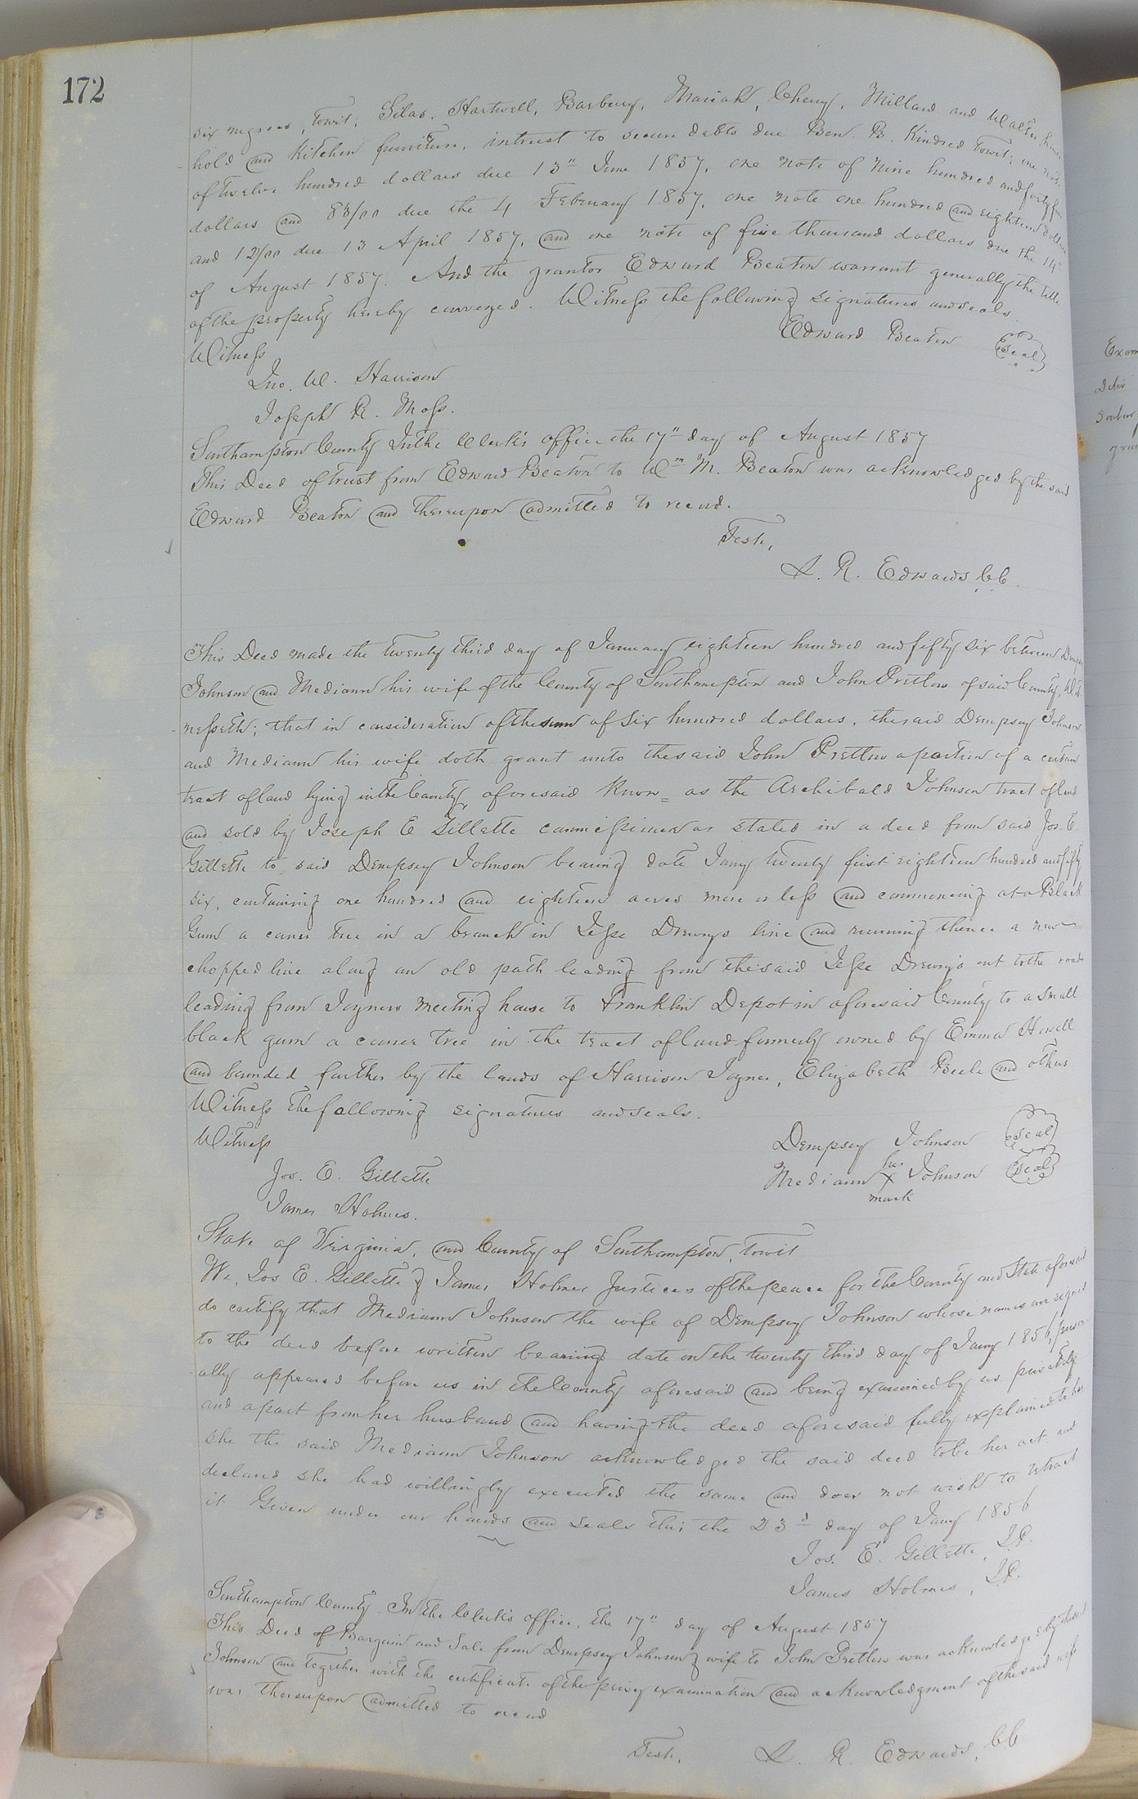 172
six negroes, towit, Silas, Hartwell, Barbery, Mariah, Cheny, Millard and Walter, house
hold and kitchen furniture, intrust to secure debts due Ben. B. Kindred towit; one note
of twelve hundred dollars due 13th June 1857, one note of nine hundred and forty
dollars and 83/00 due the 4 February 1857, one note one hundred and eighteen dollars
and 12/00 due 13 April 1857, and one note of five thousand dollars due the 14th
of August 1857. And the grantor Edward Beaton warrant generally the title
of the property hereby conveyed. Witness the following signatures and seals.
Edward Beaton Seal
Witness
Jno. W. Harrison
Joseph R. Moss.
Southampton County In the Clerk's office the 17th day of August 1857
This Deed of trust from Edward Beaton to Wm M. Beaton was acknowledged by the said
Edward Beaton and thereupon admitted to record.
Teste,
L. R. Edwards, CC.
This Deed made the twenty third day of January eighteen hundred and fifty six between
Johnson and Mediann his wife of the County of Southampton and John Pretlow of said County, Wit
nesseth; that in consideration of the sum of six hundred dollars, the said Dempsey Johnson
and Mediann his wife doth grant unto the said John Pretlow a portion of a certain
tract of land lying in the County aforesaid Known as the Archibald Johnson tract of land
and sold by Joseph E Gillette commissioner as stated in a deed from said Jos. E.
Gillette to said Dempsey Johnson bearing date Jany twenty first eighteen hundred and fifty
six, containing one hundred and eighteen acres more or less and commencing at a Black
Gum a corner tree in a branch in Jesse Drewry's line and running thence a new
chopped line along an old path leading from the said Jesse Drewry's out to the road
leading from Joyners meeting house to Franklin Depot in aforesaid County to a small
black gum a corner tree in the tract of land formerly owned by Emma Howell
and bounded further by the lands of Harrison Joyner, Elizabeth Beele and others
Witness the following signatures and seals.
Witness Dempsey Johnson Seal
Jos. E. Gillette Mediann her X mark Johnson Seal
James Holmes.
State of Virginia, and County of Southampton, towit
We, Jos E. Gillette & James Holmes Justices of the peace for the County and State aforesaid
do certify that Mediann Johnson the wife of Dempsey Johnson whose names are signed
to the deed before written bearing date on the twenty third day of Jany 1856, person
ally appeared before us in the County aforesaid and being examined by us privately
and apart from her husband and having the deed aforesaid fully explained to her
she the said Mediann Johnson acknowledged the said deed to be her act and
declared she had willingly executed the same and does not wish to retract
it Given under our hands and seals this the 23d day of Jany 1856
Jos. E. Gillette, J.P.
James Holmes, J.P.
Southampton County. In the Clerk's office, the 17th day of August 1857
This Deed of Bargain and Sale from Dempsey Johnson & wife to John Pretlow was acknowledged by the said
Johnson and together with the certificate of the privy examination and acknowledgment of the said wife
was thereupon admitted to record
Teste,
L. R. Edwards, CC